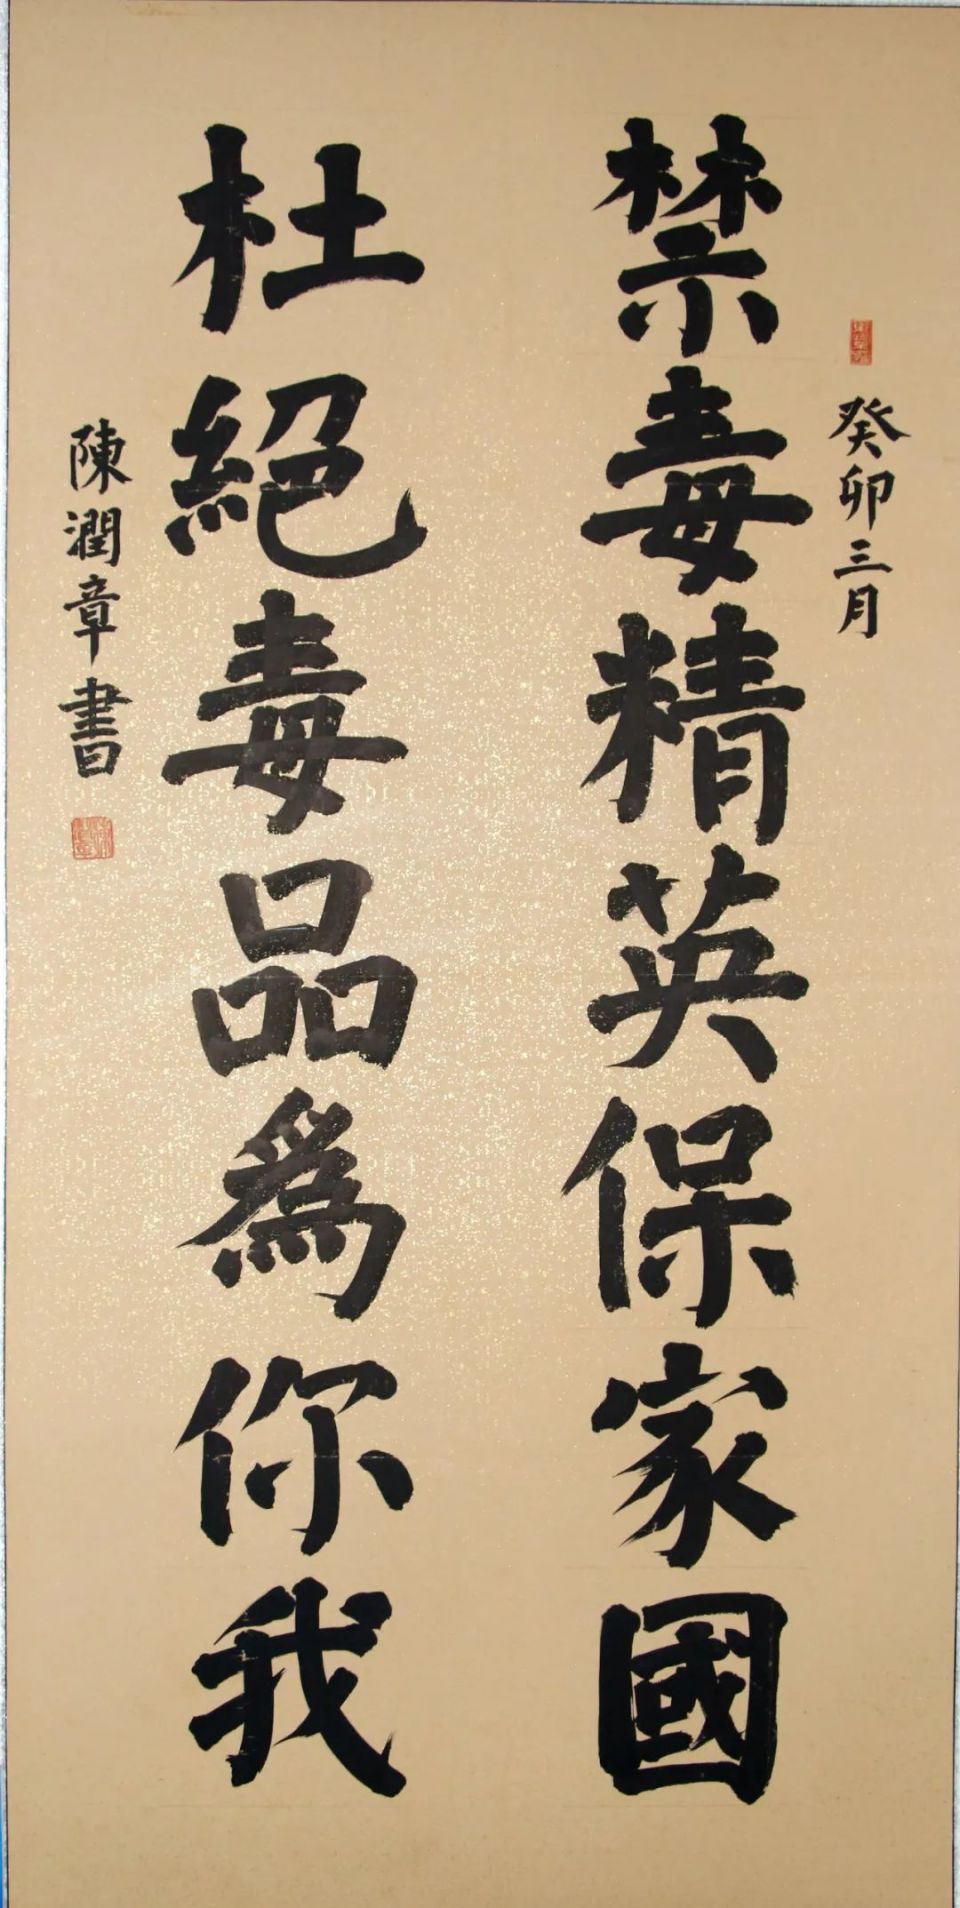 癸卯三月
禁毒精英保家國
杜絕毒品為你我
陳潤章書